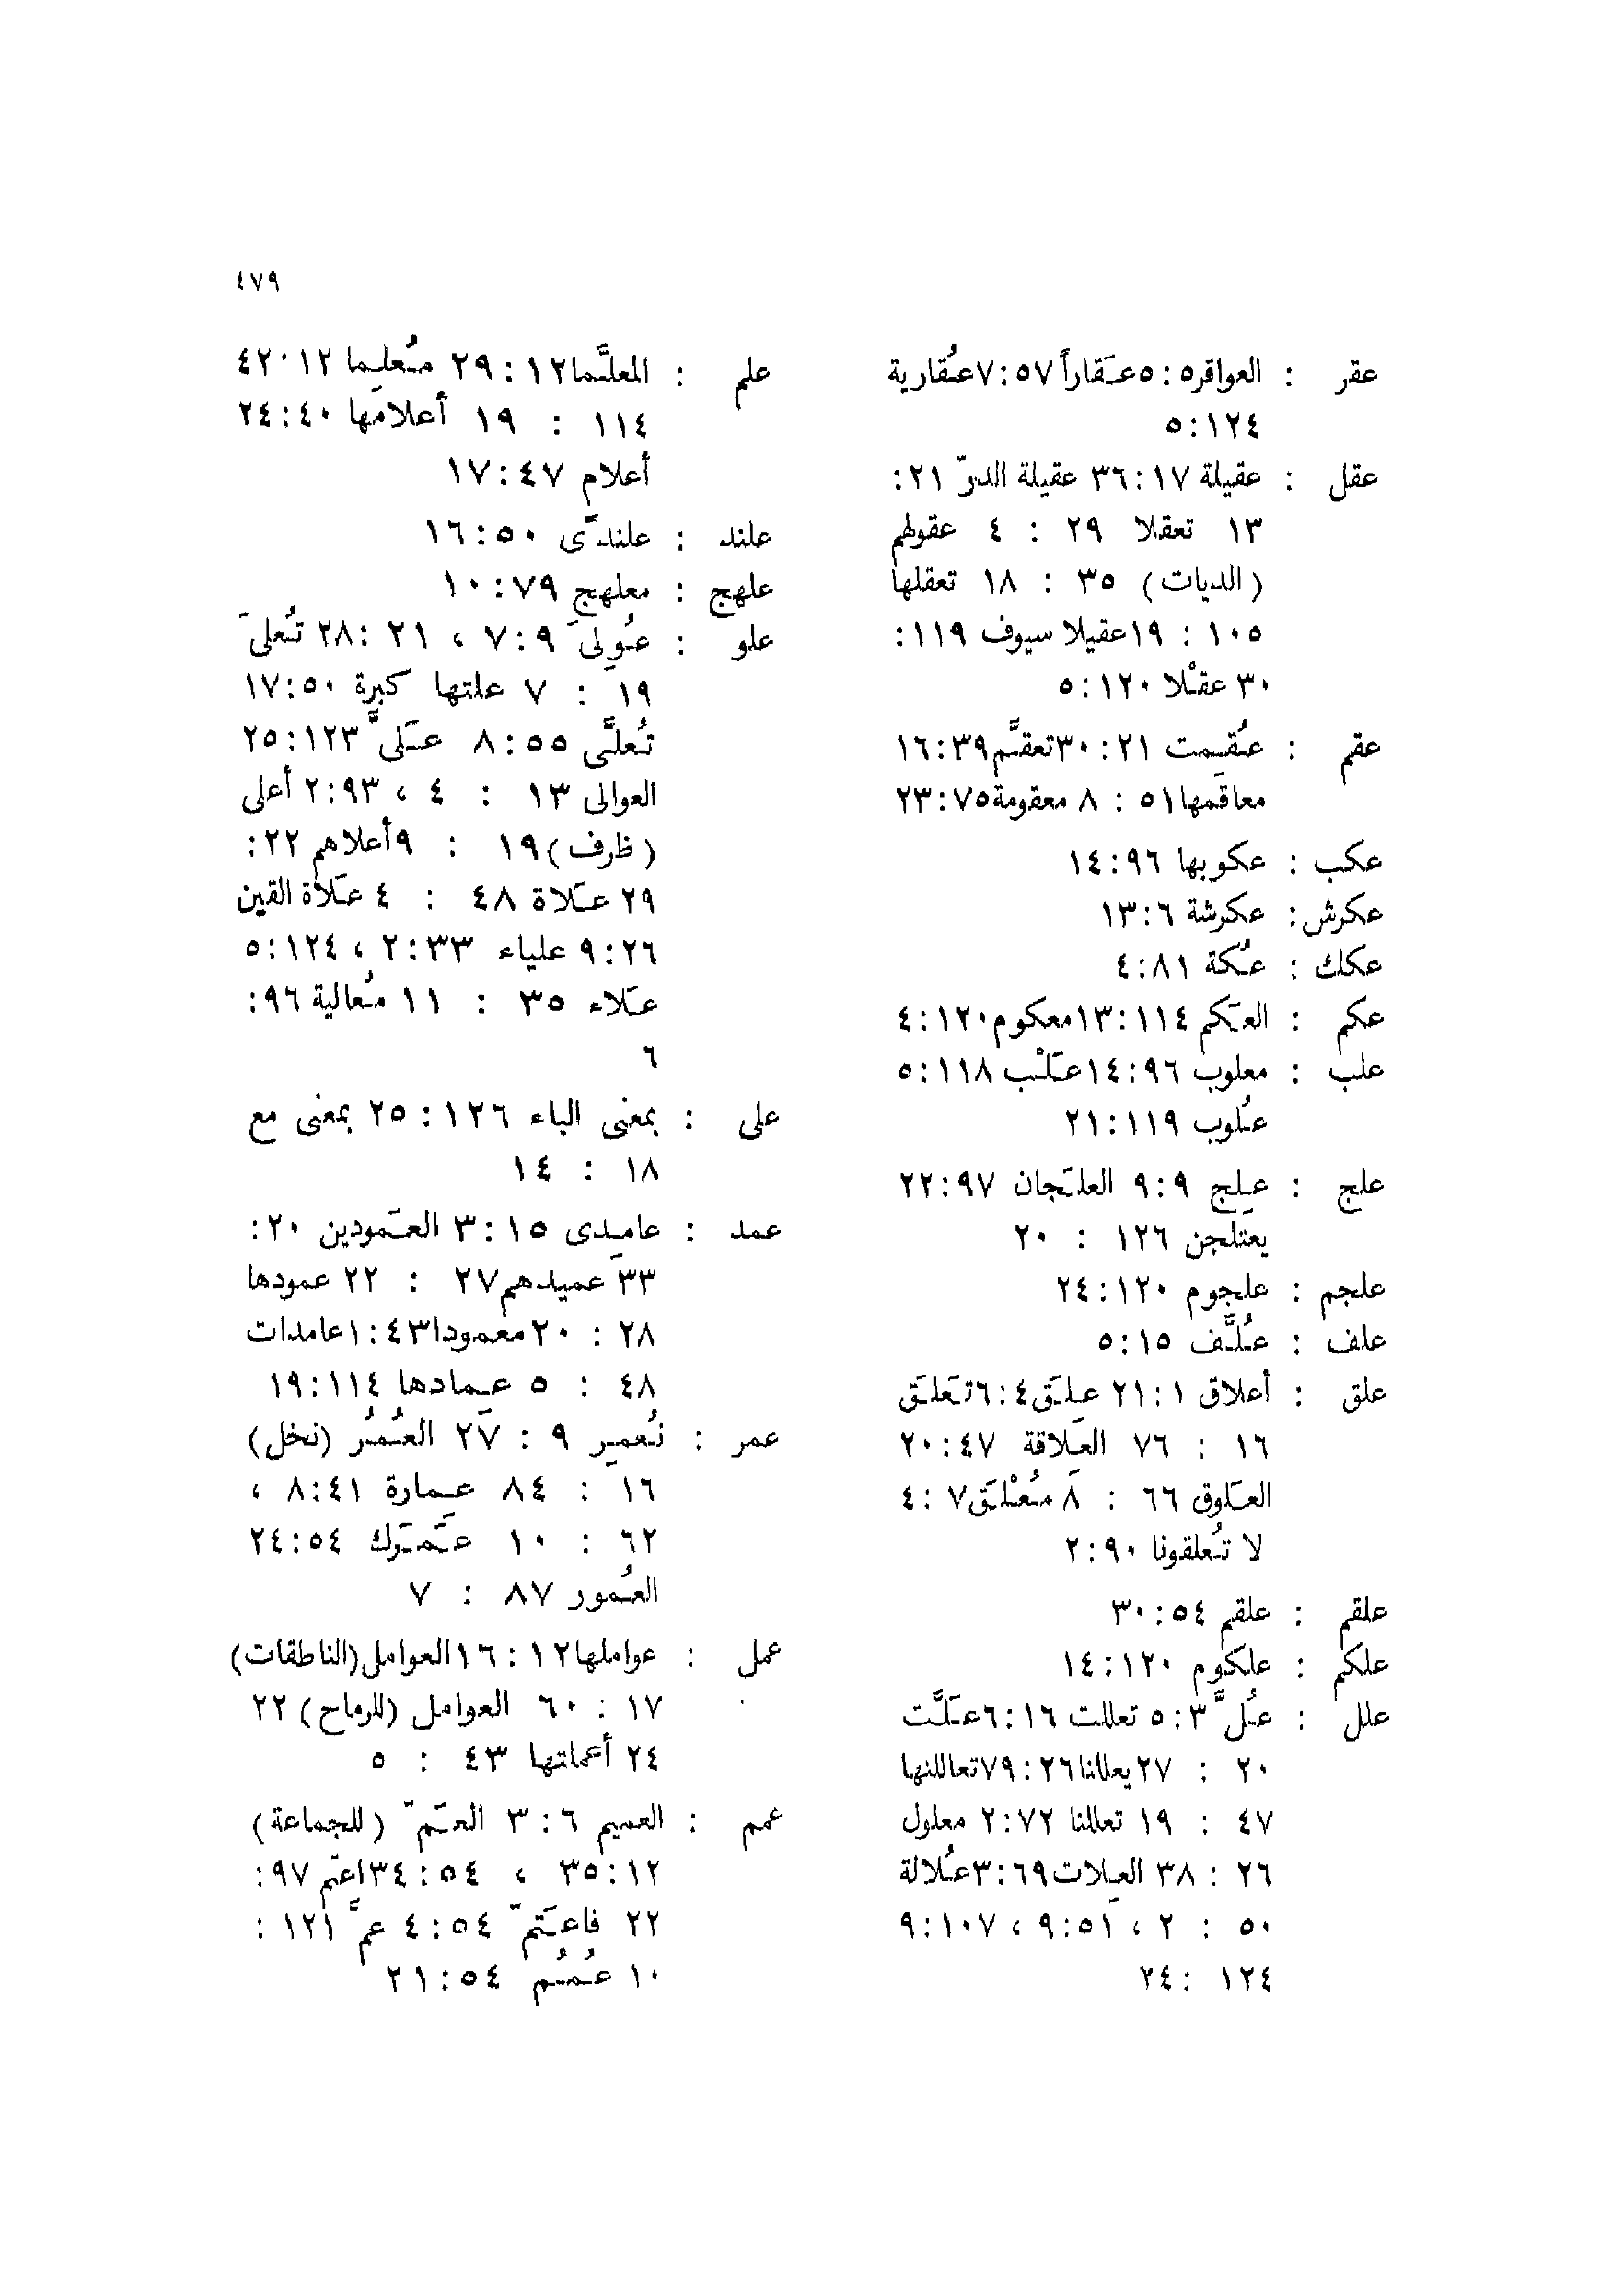 ٤٧٩
عقر : العواقر ٥:٥ عَقاراً ٧:٥٧ عُقارية
٥:١٢٤
عقل : عقيلة ٣٦:١٧ عقيلة الدرّ ٢١:
١٣ تعقلا ٢٩ : ٤ عقولهم
(الديات) ٣٥ : ١٨ تعقلها
١٠٥ : ١٩ عقيلا سيوف ١١٩:
٣٠ عقْلا ٥:١٢٠
عقم : عُقِمت ٣٠:٢١ تعقَّم ١٦:٣٩
معاقمها ٥١ : ٨ معقومة ٢٣:٧٥
عكب : عكوبها ١٤:٩٦
عكرش : عكرشة ١٣:٦
عكك : عُكة ٤:٨١
عكم : العَكم ١٣:١١٤ معكوم ٤:١٢٠
علب : معلوب ١٤:٩٦ عَلْب ٥:١١٨
عُلوب ٢١:١١٩
علج : عِلج ٩:٩ العلَجان ٢٢:٩٧
يعتلجن ١٢٦ : ٢٠
علجم : علجوم ٢٤:١٢٠
علف : عُلَّف ٥:١٥
علق : أعلاق ٢١:١ علِق ٦:٤ تَعلَق
١٦ : ٧٦ العلاقة ٢٠:٤٧
العَلوق ٦٦ : ٨ مُعْلَق ٤:٧
لا تُعلقونا ٢:٩٠
علقم : علقم ٣٠:٥٤
علكم : علكوم ١٤:١٢٠
علل : عُلَّ ٥:٣ تعاللت ٦:١٦ عَلَّت
٢٠ : ٢٧ يعاللنا ٧٩:٢٦ تعاللنها
٤٧ : ١٩ تعاللنا ٢:٧٢ معلول
٢٦ : ٣٨ العِلات ٣:٦٩ عُلالة
٥٠ : ٢ ، ٩:٥١ ، ٩:١٠٧
١٢٤ : ٢٤
علم : المعلَّما ٢٩:١٢ مُعلِما ٤٢٠١٢
١١٤ : ١٩ أعلامها ٢٤:٤٠
أعلام ١٧:٤٧
علند : علندًى ١٦:٥٠
علهج : معلهج ١٠:٧٩
علو : عُولِىَ ٧:٩ ، ٢٨:٢١ تُعلىَ
١٩ : ٧ علتها كبرة ١٧:٥٠
تُعلَّى ٨:٥٥ عَلىَّ ٢٥:١٢٣
العوالى ١٣ : ٤ ، ٢:٩٣ أعلى
(ظرف) ١٩ : ٩ أعلاهم ٢٢:
٢٩ عَلاة ٤٨ : ٤ عَلاة القين
٩:٢٦ علياء ٢:٣٣ ، ٥:١٢٤
عَلاء ٣٥ : ١١ مُعالية ٩٦:
٦
على : بمعنى الباء ٢٥:١٢٦ بمعنى مع
١٨ : ١٤
عمد : عامِدى ٣:١٥ العَمودين ٢٠:
٣٣ عميدهم ٢٧ : ٢٢ عمودها
٢٨ : ٢٠ معمودا ١:٤٣ عامدات
٤٨ : ٥ عِمادها ١٩:١١٤
عمر : نُعمِر ٩ : ٢٧ العُمُرُ (نخل)
١٦ : ٨٤ عِمارة ٨:٤١ ،
٦٢ : ١٠ عَمَرَك ٢٤:٥٤
العُمور ٨٧ : ٧
عمل : عواملها ١٦:١٢ العوامل (الناطقات)
١٧ : ٦٠ العوامل (للرماح) ٢٢
٢٤ أعملتها ٤٣ : ٥
عمم : العميم ٣:٦ العَمّ (للجماعة)
٣٥:١٢ ، ٣٤:٥٤ اعتم ٩٧:
٢٢ فاعتَمّ ٤:٥٤ عمَّ ١٢١ :
١٠ عُمُم ٢١:٥٤